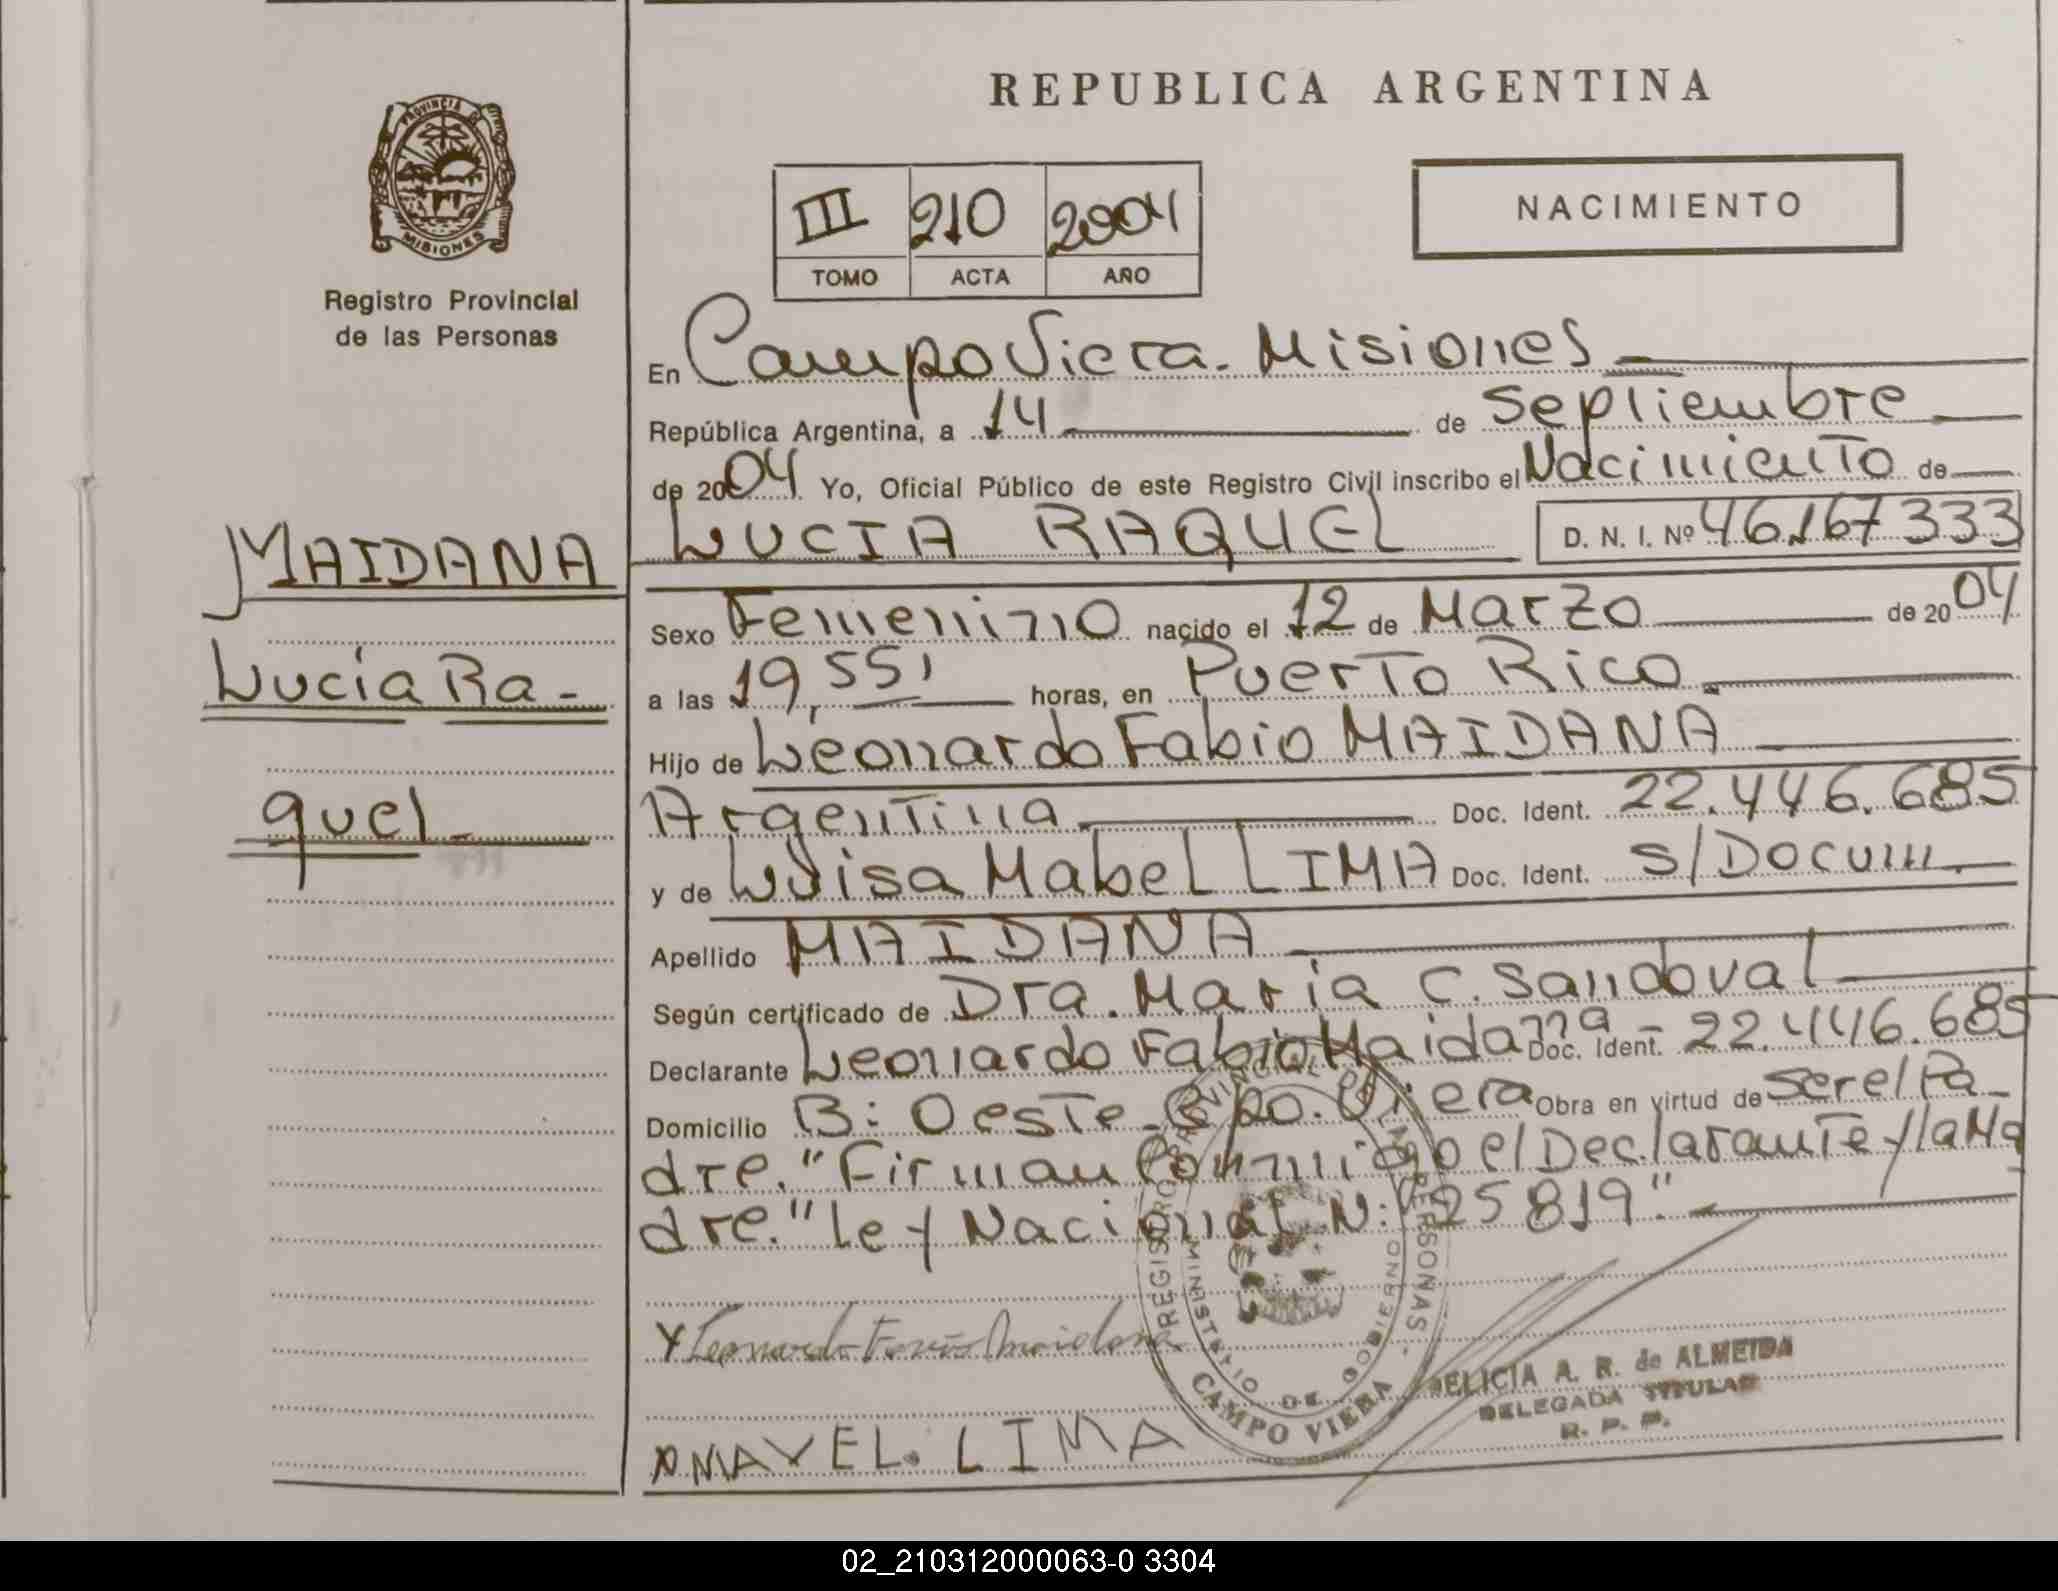 PROVINCIA DE
MISIONES
Registro Provincial
de las Personas
MAIDANA
Lucía Ra-
quel
REPUBLICA ARGENTINA
III 210 2004
TOMO ACTA AÑO
NACIMIENTO
En Campo Viera. Misiones
República Argentina, a 14 de septiembre
de 2004 Yo, Oficial Público de este Registro Civil inscribo el Nacimiento de
LUCIA RAQUEL D. N. I. Nº 46.167.333
Sexo Femenino nacido el 12 de Marzo de 2004
a las 19,55' horas, en Puerto Rico
Hijo de Leonardo Fabio MAIDANA
Argentina Doc. Ident. 22.446.685
y de Luisa Mabel LIMA Doc. Ident. s/Docum
Apellido MAIDANA
Según certificado de Dra. María C. Sandoval
Declarante Leonardo Fabio Maidana - Doc. Ident. 22.446.685
Domicilio B: Oeste - Cpo. Viera Obra en virtud de ser el Pa-
dre. "Firman Conmigo el Declarante y la Ma
dre." Ley Nacional N: "25819"
REGISTRO PROVINCIAL DE LAS PERSONAS
MINISTERIO DE GOBIERNO
CAMPO VIERA
Leonardo Favio Maidana
DELICIA A. R. de ALMEIDA
DELEGADA TITULAR
R. P. P.
MAVEL. LIMA
02_210312000063-0 3304